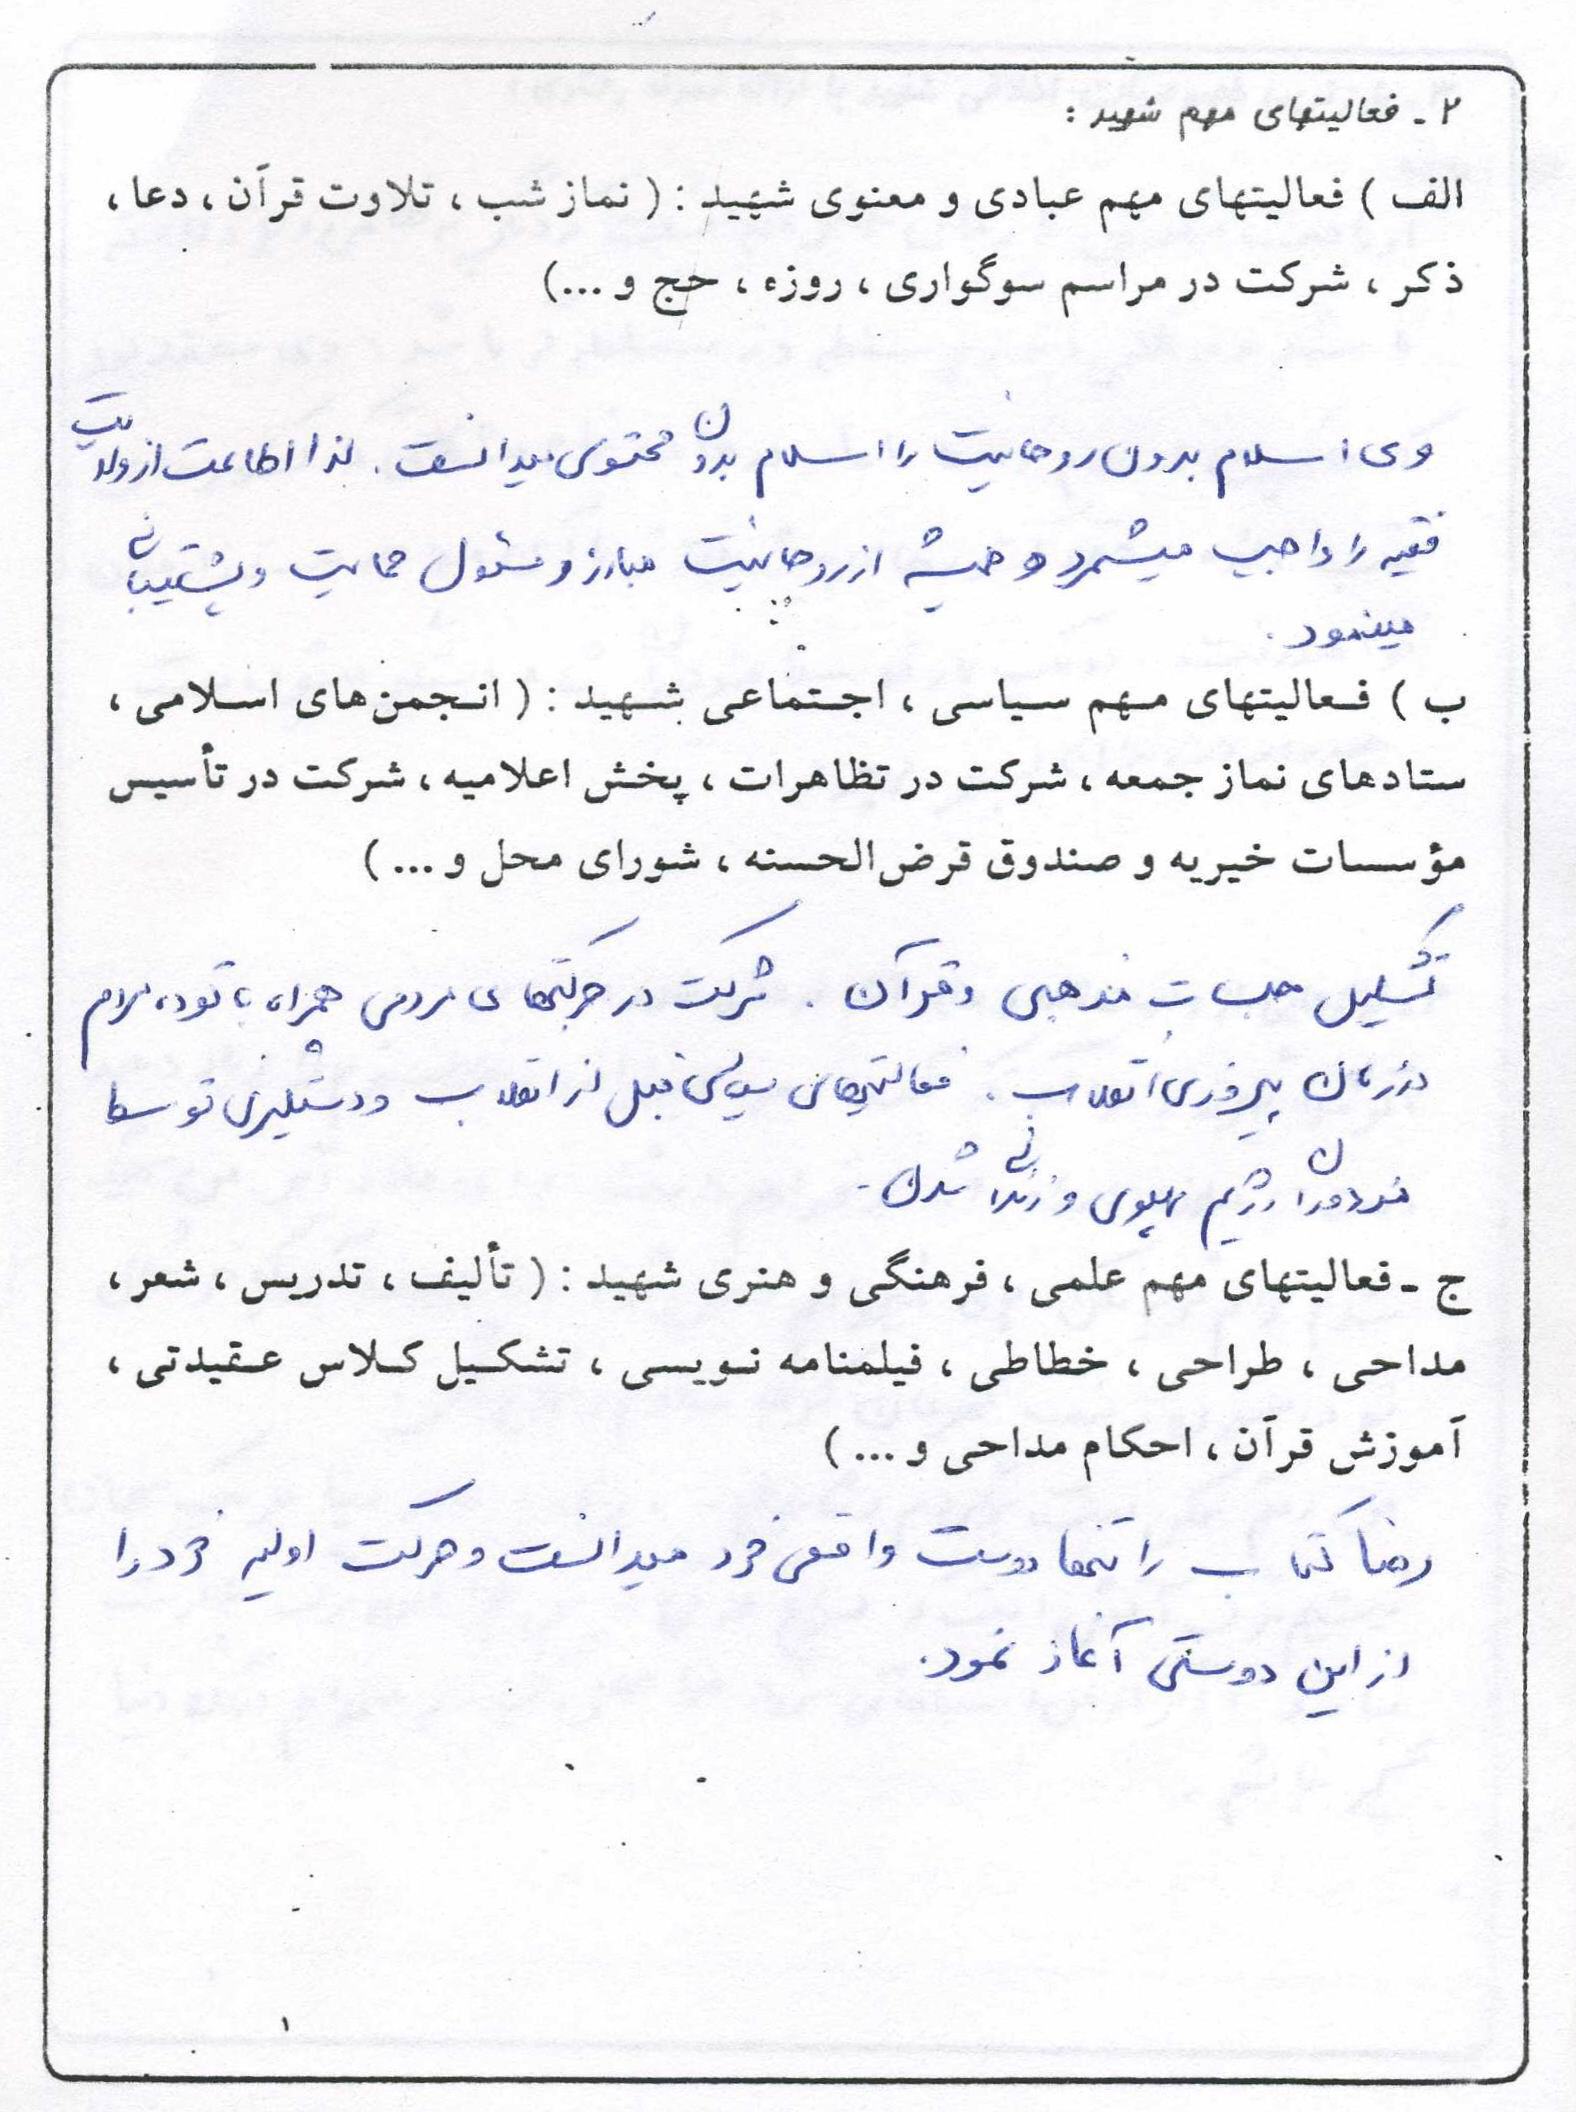 ۲ ـ فعالیتهای مهم شهید :
الف ) فعالیتهای مهم عبادی و معنوی شهید : ( نماز شب ، تلاوت قرآن ، دعا ،
ذکر ، شرکت در مراسم سوگواری ، روزه ، حج و ...)
وی اسلام بدون روحانیت را اسلام بدون محتوی میدانست . لذا اطاعت از ولایت
فقیه را واجب میشمرد و همیشه از روحانیت مبارز و مسئول حمایت و پشتیبانی
مینمود .
ب ) فعالیتهای مهم سیاسی ، اجتماعی شهید : ( انجمن‌های اسلامی ،
ستادهای نماز جمعه ، شرکت در تظاهرات ، پخش اعلامیه ، شرکت در تأسیس
مؤسسات خیریه و صندوق قرض‌الحسنه ، شورای محل و ... )
تشکیل جلسات مذهبی و قرآن . شرکت در حرکتهای مردمی همراه با توده مردم
در زمان پیروزی انقلاب . فعالیتهای سیاسی قبل از انقلاب و دستگیری توسط
مزدوران رژیم پهلوی و زندانی شدن .
ج ـ فعالیتهای مهم علمی ، فرهنگی و هنری شهید : ( تألیف ، تدریس ، شعر ،
مداحی ، طراحی ، خطاطی ، فیلمنامه نویسی ، تشکیل کلاس عقیدتی ،
آموزش قرآن ، احکام مداحی و ... )
رضا کتاب را تنها دوست واقعی خود میدانست و حرکت اولیه خود را
از این دوستی آغاز نمود .
۱